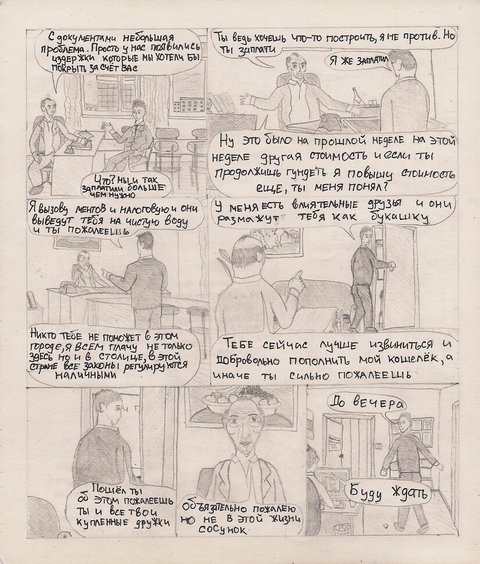 С документами небольшая
проблема. Просто у нас появились
издержки которые мы хотели бы
покрыть за счёт вас
Что? Мы и так
заплатили больше
чем нужно
Ты ведь хочешь что-то построить, я не против. Но
ты заплати
Я же заплатил
Ну это было на прошлой неделе на этой
неделе другая стоимость и если ты
продолжишь гундеть я повышу стоимость
ещё, ты меня понял?
Я вызову ментов и налоговую и они
выведут тебя на чистую воду
и ты пожалеешь
Никто тебе не поможет в этом
городе, я всем плачу не только
здесь но и в столице, в этой
стране все законы регулируются
наличными
У меня есть влиятельные друзья и они
размажут тебя как букашку
Тебе сейчас лучше извиниться и
добровольно пополнить мой кошелёк, а
иначе ты сильно пожалеешь
Пошёл ты
об этом пожалеешь
ты и все твои
купленные дружки
Обязательно пожалею
но не в этой жизни
сосунок
До вечера
Буду ждать